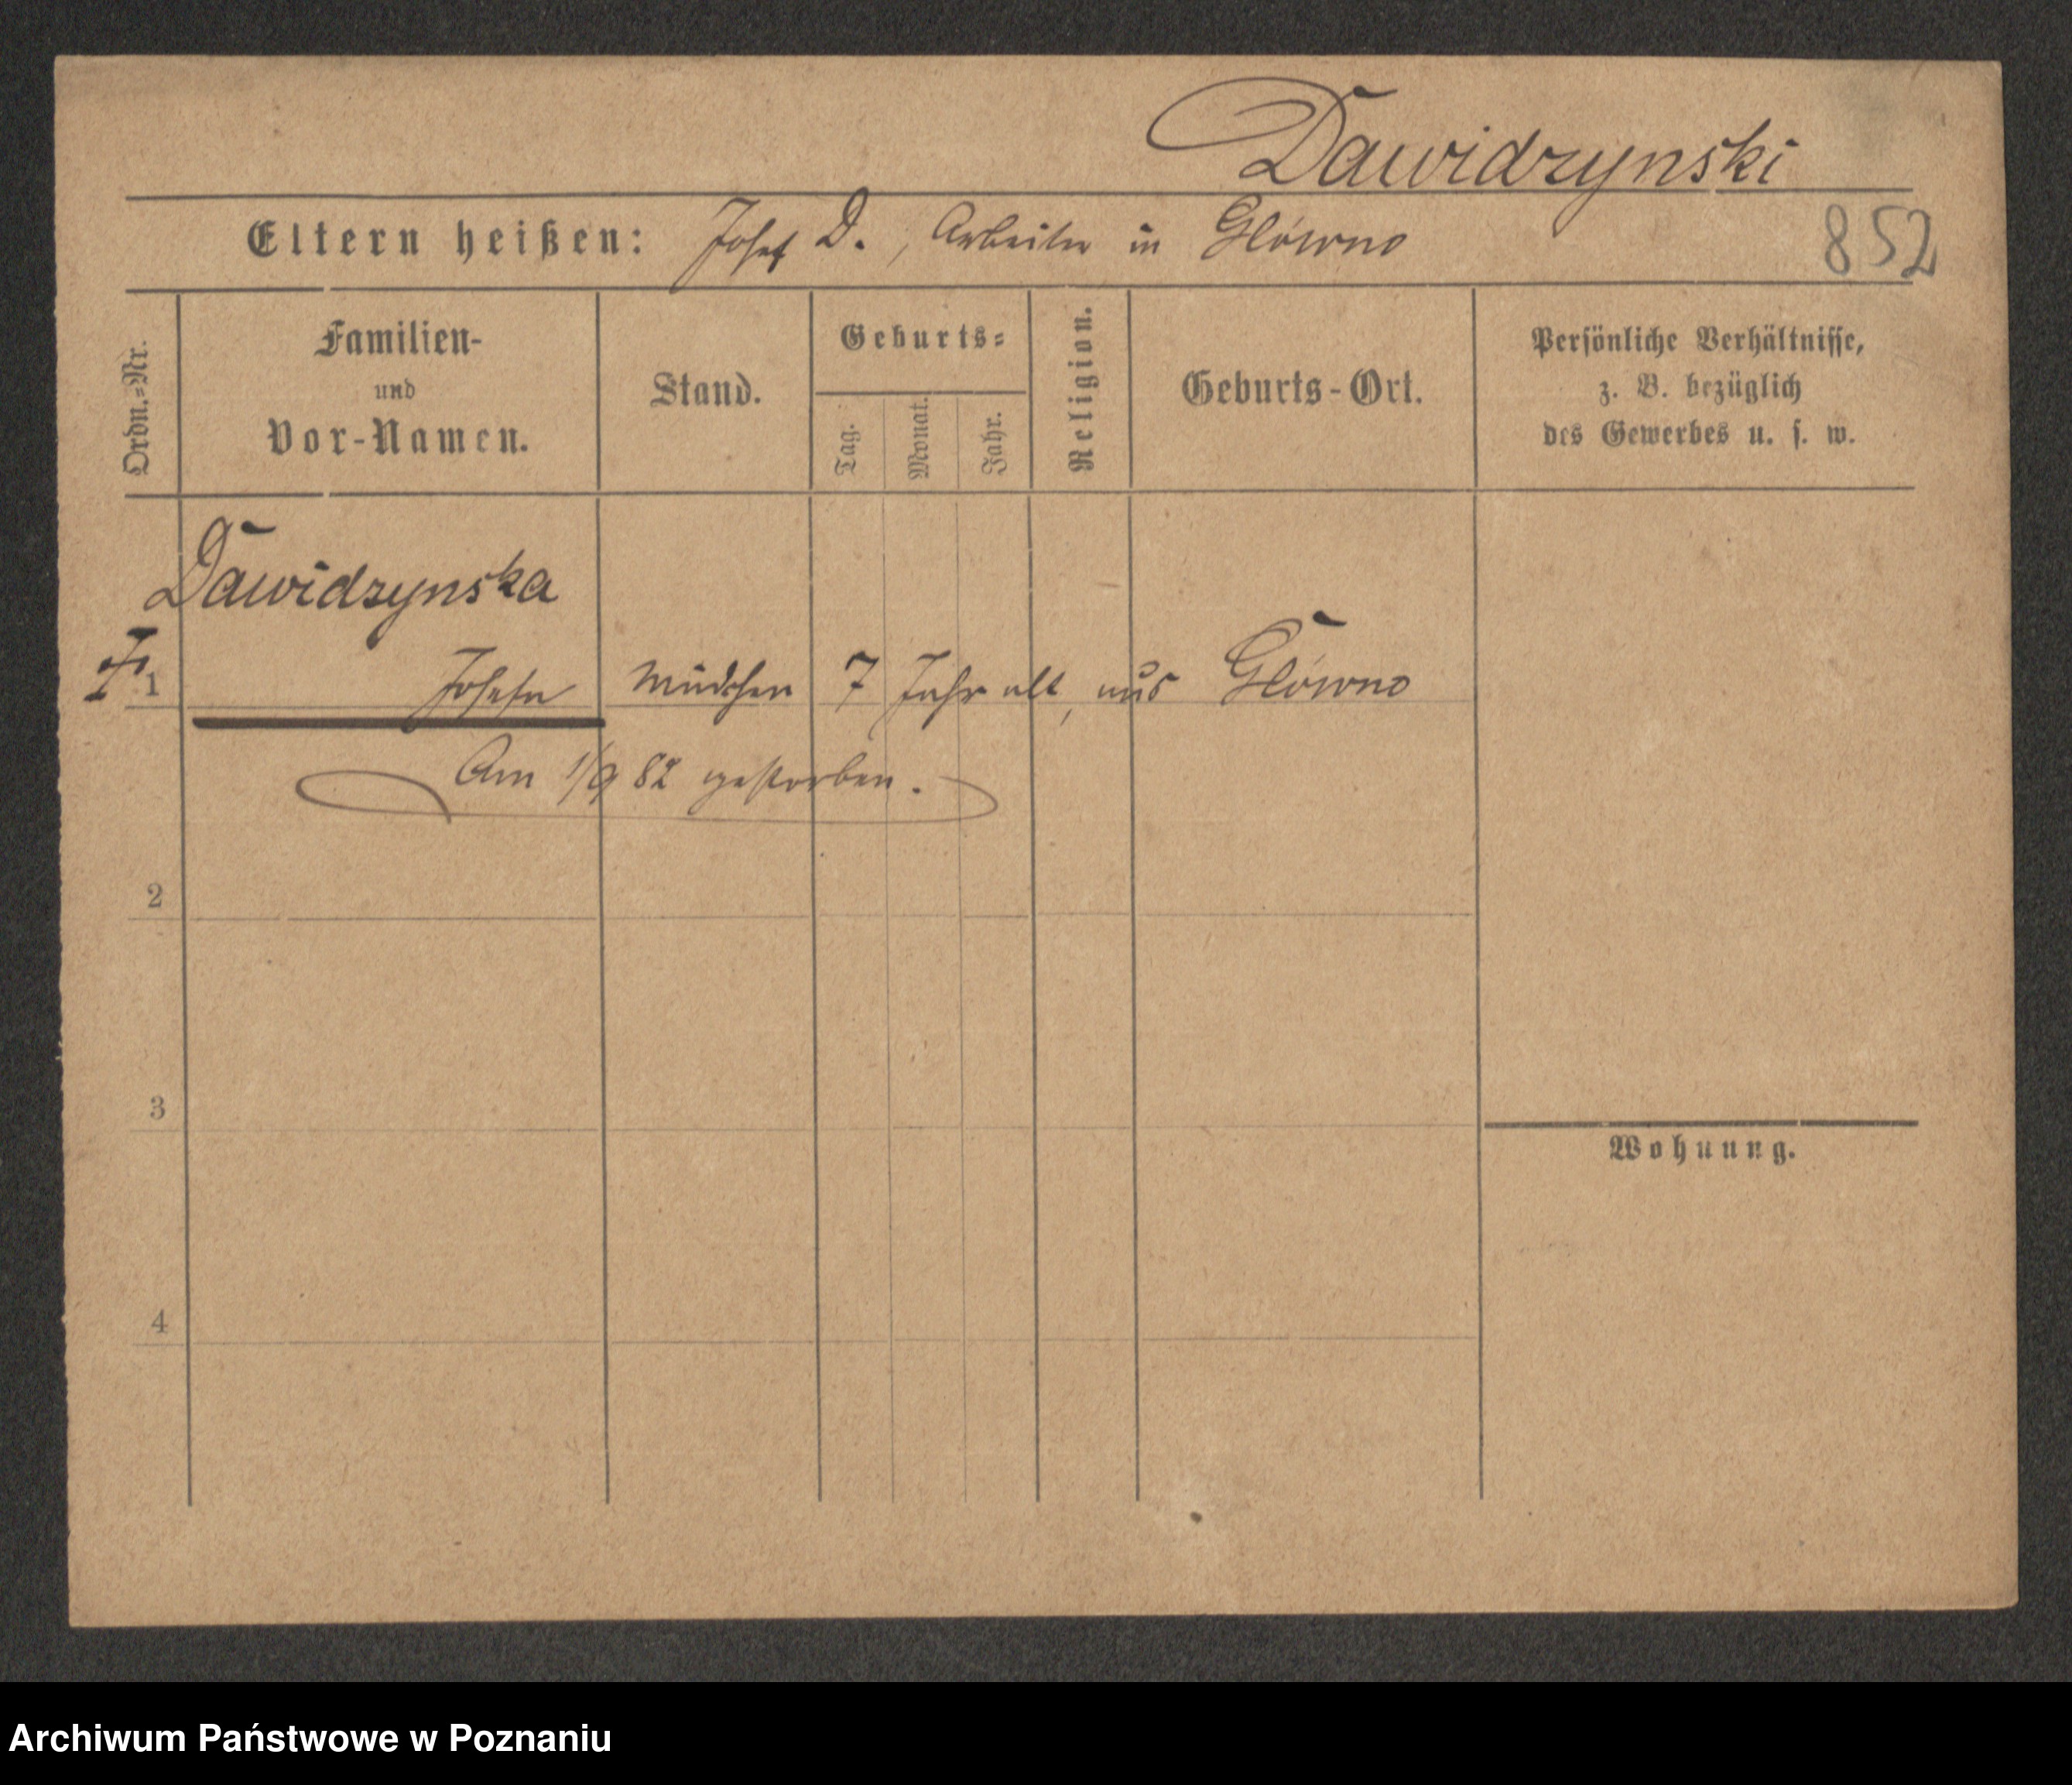 Dawidzynski
Eltern heißen: Josef D., Arbeiter in Glówno
852
Ordn.=Nr.
Familien-
und
Vor-Namen.
Stand.
Geburts=
Tag.
Monat.
Jahr.
Religion.
Geburts-Ort.
Persönliche Verhältnisse,
z. B. bezüglich
des Gewerbes u. s. w.
Dawidzynska
1 Josefa Mädchen 7 Jahr alt, aus Glówno
Am 1/9 82 gestorben.
2
3
Wohnung.
4
Archiwum Państwowe w Poznaniu